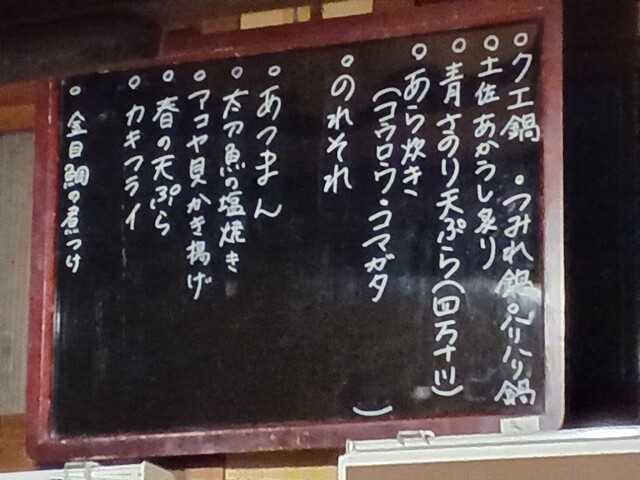 ○クエ鍋 ・つみれ鍋 ○ハリハリ鍋
○土佐あかうし炙り
○青さのり天ぷら(四万十川)
○あら炊き
(コウロウ・コマガタ )
○のれそれ
○あつまん
○太刀魚の塩焼き
○アコヤ貝かき揚げ
○春の天ぷら
○カキフライ
○金目鯛の煮つけ